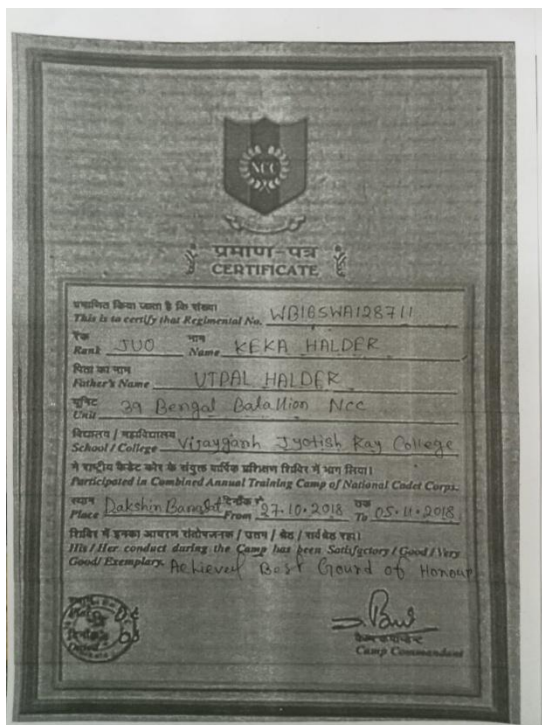 NCC
प्रमाण-पत्र
CERTIFICATE
प्रमाणित किया जाता है कि संख्या
This is to certify that Regimental No. WB18SWA128711
रैंक नाम
Rank JUO Name KEKA HALDER
पिता का नाम
Father's Name UTPAL HALDER
यूनिट
Unit 39 Bengal Batallion Ncc
विद्यालय / महाविद्यालय
School / College Vijaygarh Jyotish Ray College
ने राष्ट्रीय कैडेट कोर के संयुक्त वार्षिक प्रशिक्षण शिविर में भाग लिया।
Participated in Combined Annual Training Camp of National Cadet Corps.
स्थान दिनाँक से तक
Place Dakshin From 27.10.2018 To 05.11.2018
शिविर में इनका आचरण संतोषजनक / उत्तम / श्रेष्ठ / सर्वश्रेष्ठ रहा।
His / Her conduct during the Camp has been Satisfactory / Good / Very
Good / Exemplary. Achieved Best Gourd of Honour
कैम्प कमांडेंट
Camp Commandant